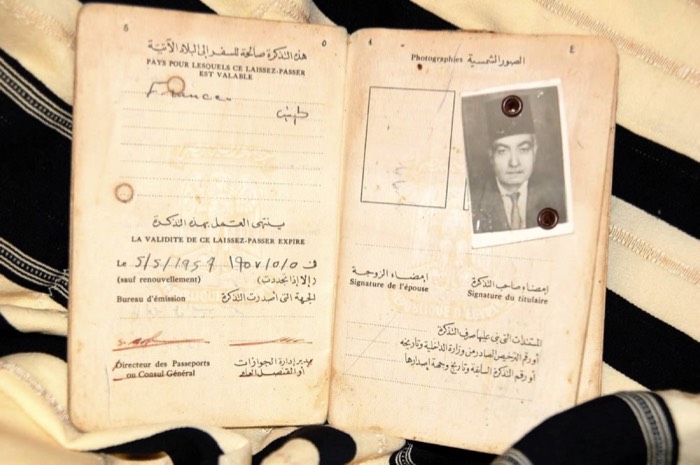 5 ٥
هذه التذكرة صالحة للسفر إلى البلاد الآتية
PAYS POUR LESQUELS CE LAISSEZ-PASSER
EST VALABLE
France
ينتهى العمل بهذه التذكرة
LA VALIDITE DE CE LAISSEZ-PASSER EXPIRE
Le 5/5/1957 ١٩٥٧/٥/٥ فى
(sauf renouvellement) (إلا إذا تجددت)
Bureau d'émission الجهة التى أصدرت التذكرة
Directeur des Passeports مدير إدارة الجوازات
ou Consul Général أو القنصل العام
4 ٤
Photographies الصور الشمسية
إمضاء الزوجة إمضاء صاحب التذكرة
Signature de l'épouse Signature du titulaire
المستندات التى بنى عليها صرف التذكرة
أو رقم الترخيص الصادر من وزارة الداخلية وتاريخه
أو رقم التذكرة السابقة وتاريخ وجهة إصدارها